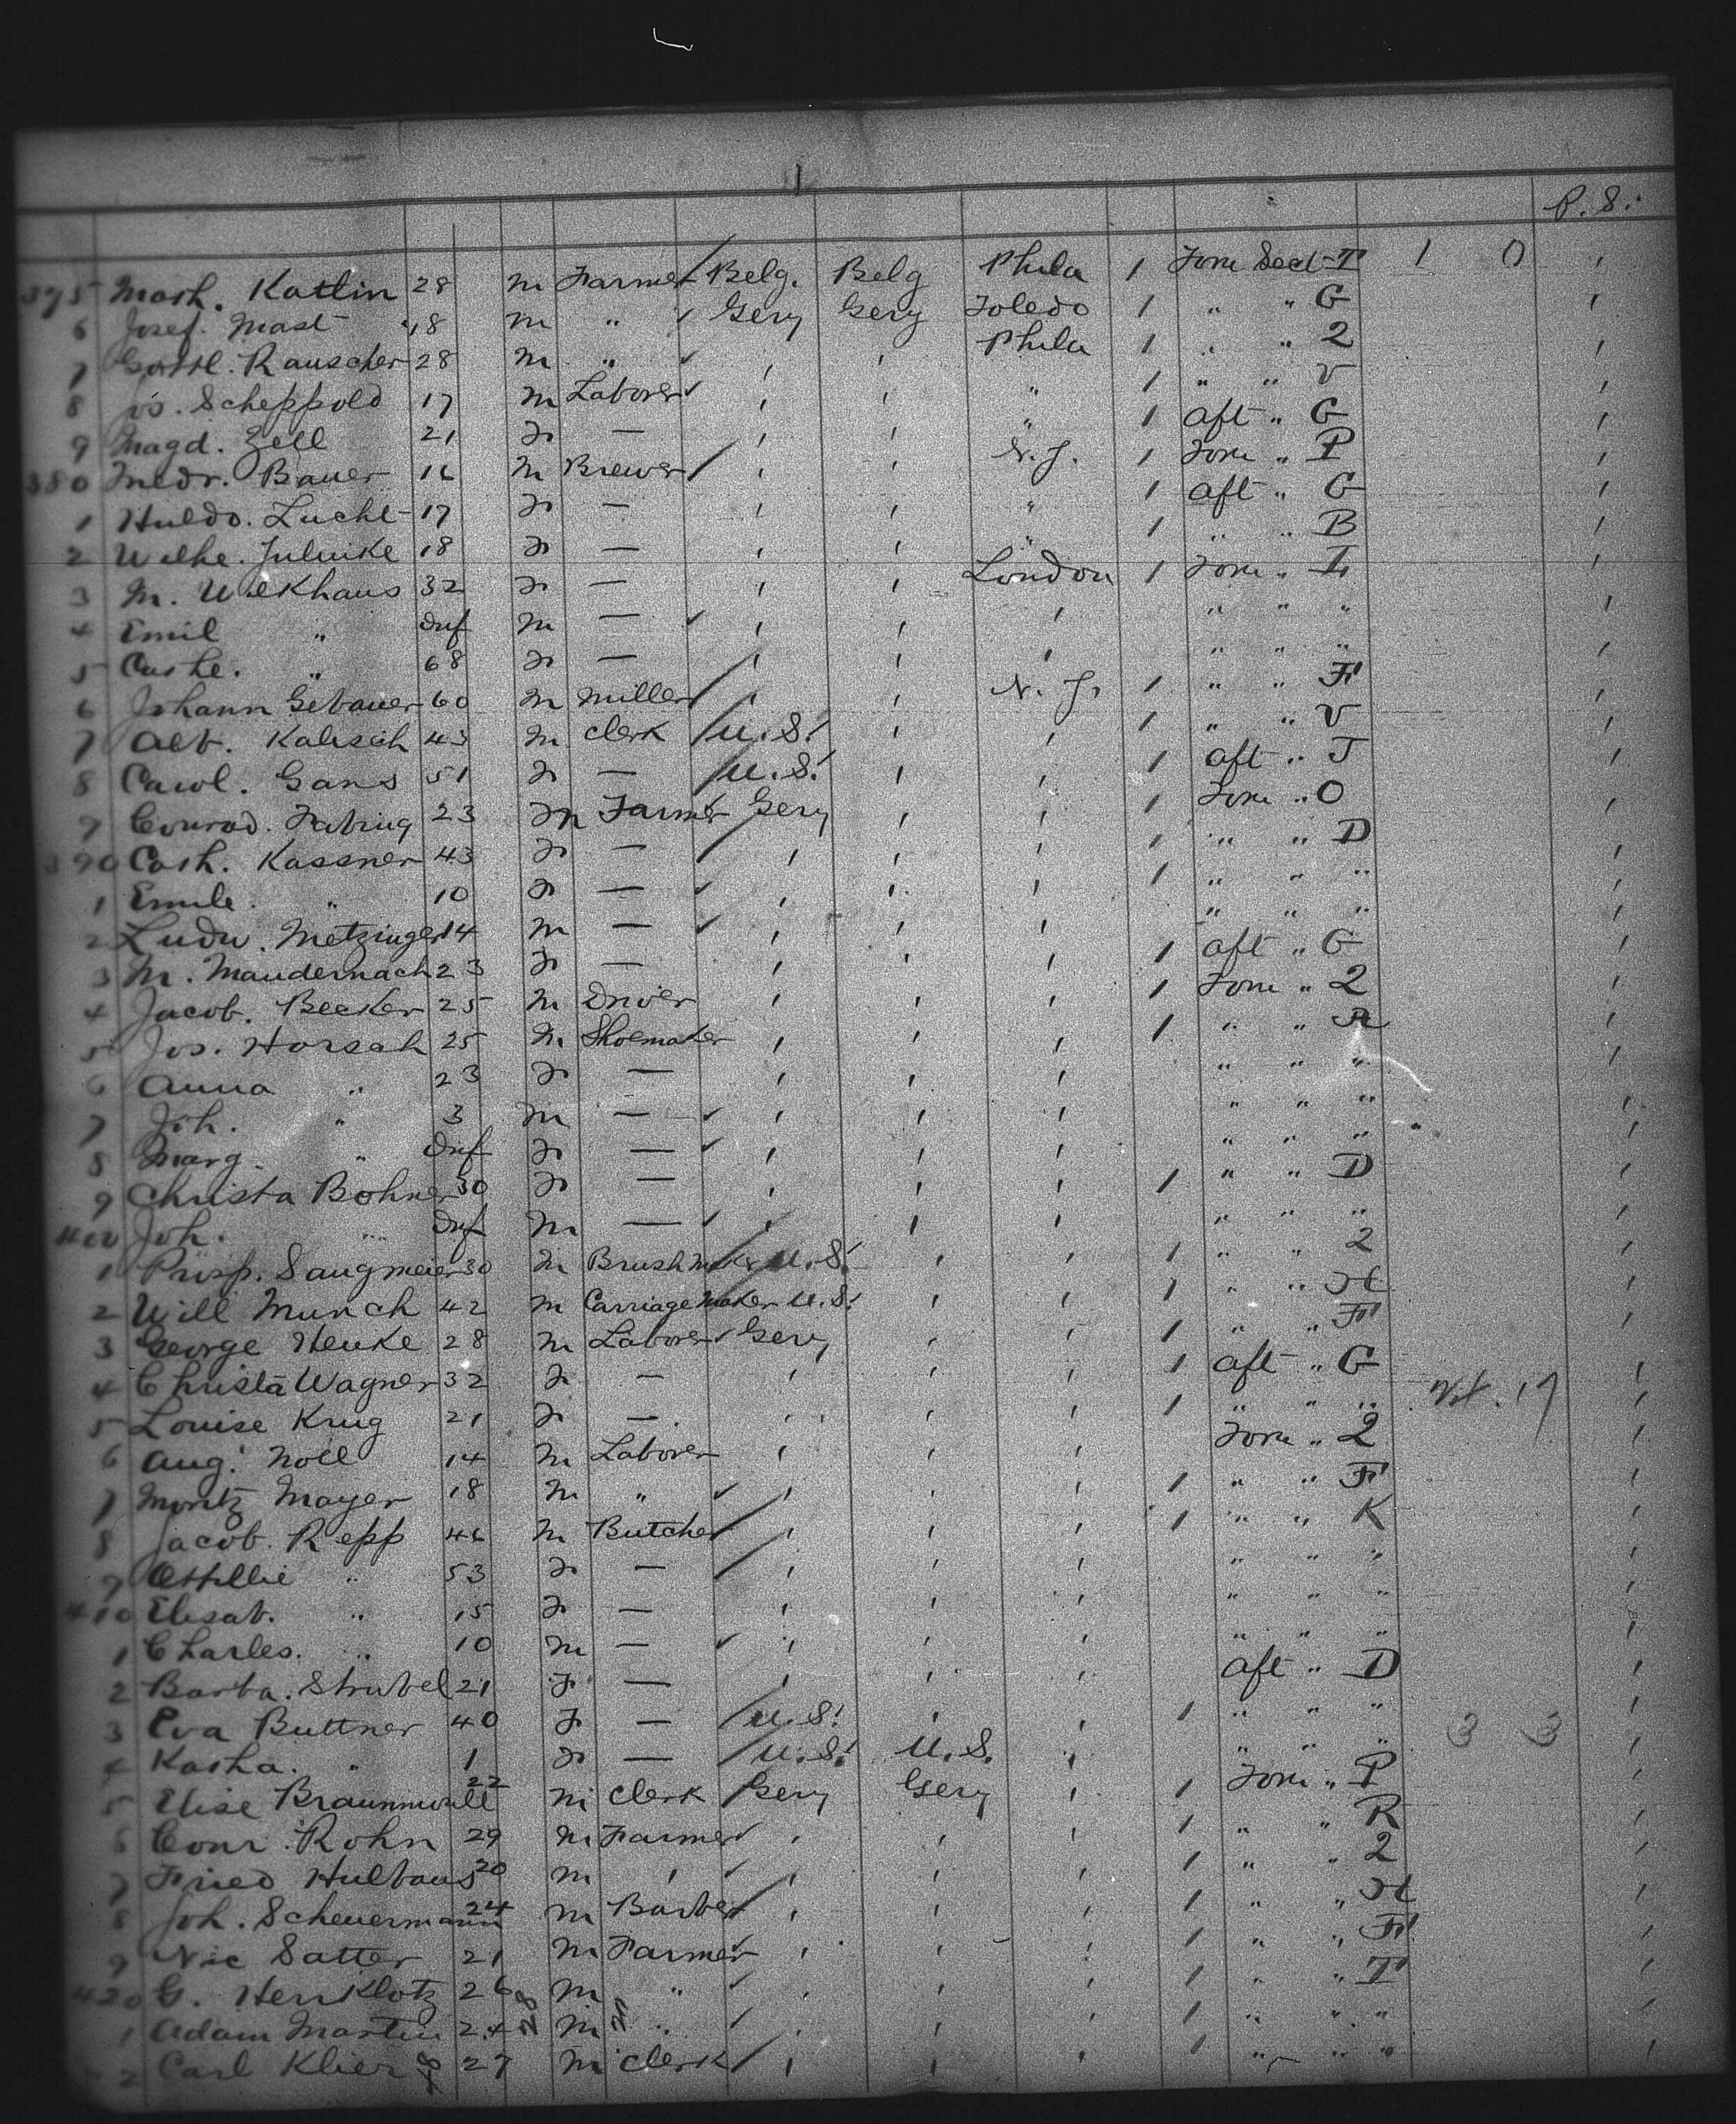 P. S.
375 Math. Katlin 28 m Farmer Belg. Belg Phila 1 Forw Sect T 1 0 1
6 Josef. Mast 18 m " Gery Gery Toledo 1 " " G 1
7 Gottl. Rauscher 28 m " ' ' Phila 1 " " 2 1
8 Jos. Scheppold 17 m Laborer ' ' " 1 " " V 1
9 Magd. Zell 21 F — ' ' " 1 aft " G 1
380 Fredr. Bauer 16 m Brewer ' ' N.J. 1 Forw " P 1
1 Huldo. Lucht 17 F — ' ' " 1 aft " G 1
2 Wilhe. Julnike 18 F — ' ' " 1 " " B 1
3 M. Welkhaus 32 F — ' ' London 1 Forw " I 1
4 Emil " Inf m — ' ' ' " " " 1
5 Cathe. " 68 F — ' ' ' " " " 1
6 Johann Gebauer 60 m Miller ' ' N. J. 1 " " F 1
7 Alb. Kalisch 43 m Clerk U.S. ' ' 1 " " V 1
8 Carol. Gans 51 F — U.S. ' ' 1 aft " J 1
9 Conrad. Fabing 23 m Farmer Gery ' ' 1 Forw " O 1
390 Cath. Kassner 43 F — ' ' ' 1 " " D 1
1 Emile. " 10 F — ' ' ' 1 " " " 1
2 Ludw. Metzinger 14 m — ' ' ' " " " 1
3 M. Maudernach 23 F — ' ' ' 1 aft " G 1
4 Jacob. Becker 25 m Driver ' ' ' 1 Forw " 2 1
5 Jos. Horsah 25 m Shoemaker ' ' ' 1 " " R 1
6 Anna " 23 F — ' ' ' " " " 1
7 Joh. " 3 m — ' ' ' " " " 1
8 Marg. " Inf F — ' ' ' " " " 1
9 Christa Bohner 30 F — ' ' ' 1 " " D 1
400 Joh. " Inf m — ' ' ' " " " 1
1 Prosp. Saugmeier 30 m Brushmaker U.S. ' ' 1 " " 2 1
2 Will Munch 42 m Carriage Maker U.S. ' ' 1 " " H 1
3 George Henke 28 m Laborer Gery ' ' 1 " " F 1
4 Christa Wagner 32 F — ' ' ' 1 aft " G 1
5 Louise Krug 21 F — ' ' ' 1 " " " 1
6 Aug. Noll 14 m Laborer ' ' ' Forw " 2 1
7 Moritz Mayer 18 m " ' ' ' 1 " " F 1
8 Jacob. Repp 46 m Butcher ' ' ' 1 " " K 1
9 Ottillie " 53 F — ' ' ' " " " 1
410 Elisab. " 15 F — ' ' ' " " " 1
1 Charles. " 10 m — ' ' ' " " " 1
2 Barba. Strubel 21 F — ' ' ' aft " D 1
3 Eva Buttner 40 F — U.S. ' ' 1 " " " 1
4 Katha. " 1 F — U.S. U.S. ' " " " 3 3 1
5 Elise Braunmull 22 m Clerk Gery Gery ' 1 Forw " P 1
6 Conr. Rohn 29 m Farmer ' ' ' 1 " " R 1
7 Fried Hulbaus 20 m ' ' ' ' 1 " " 2 1
8 Joh. Scheuermann 24 m Barber ' ' ' 1 " " H 1
9 Nic Satter 21 m Farmer ' ' ' 1 " " F 1
420 G. Henklotz 26 m " ' ' ' 1 " " T 1
1 Adam Martin 24 m " ' ' ' 1 " " " 1
2 Carl Klier 27 m Clerk ' ' ' 1 " " " 1